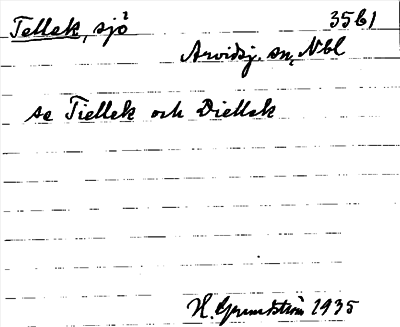 Tellek, sjö 3561
Arvidsj. sn, Nbl
se Tiellek och Diellek
H. Grundström 1935